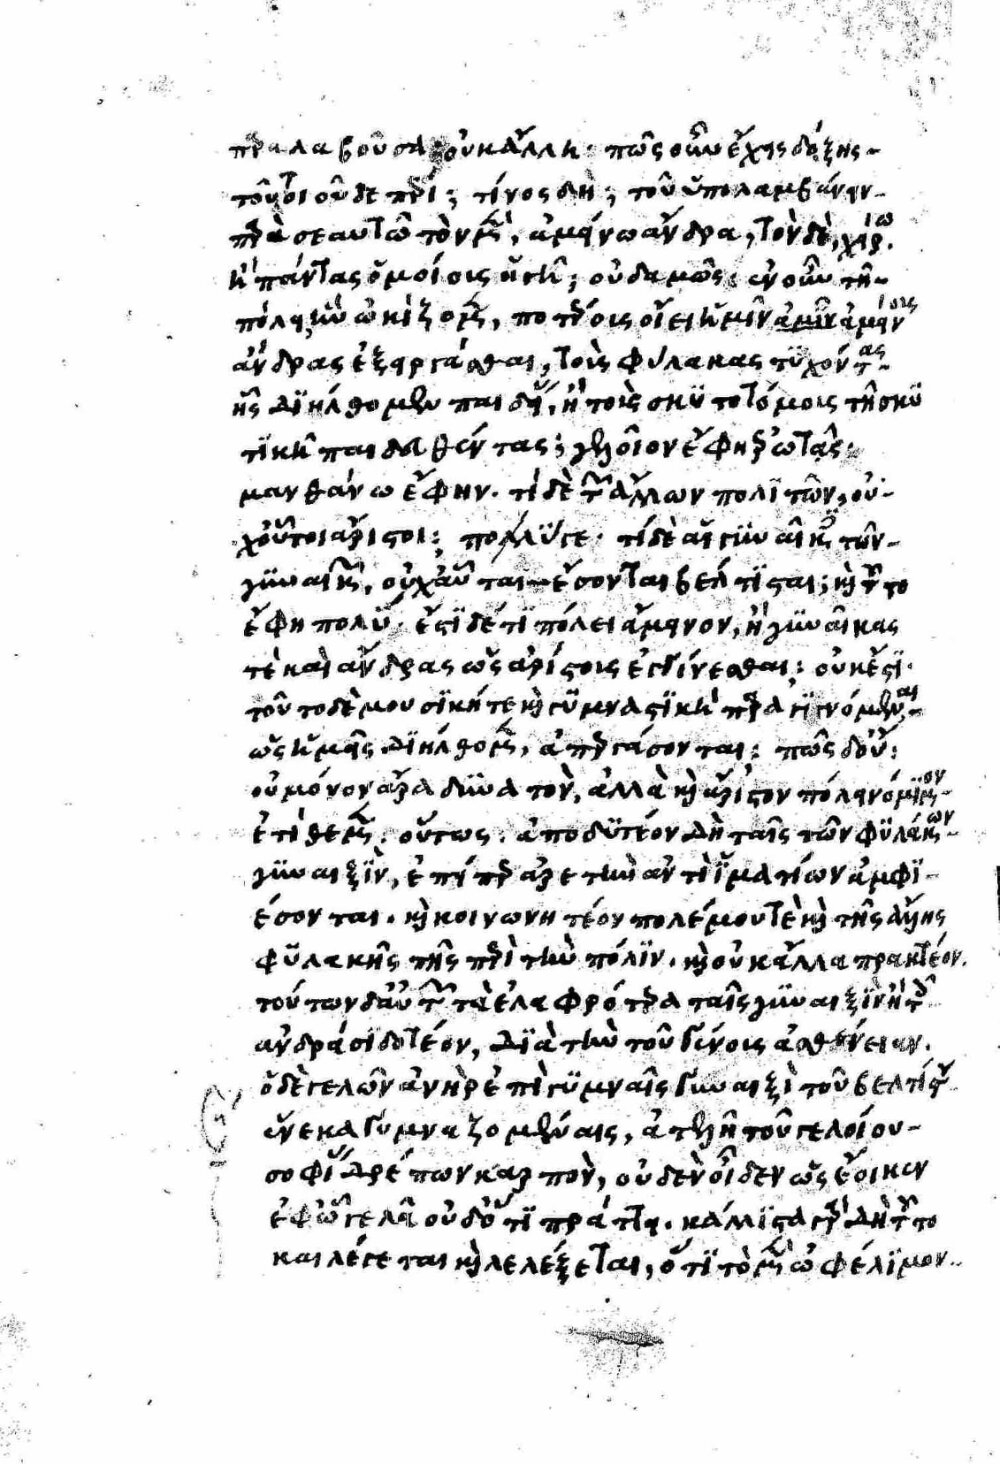 παραλαβοῦσα· οὐκ ἄλλη· πῶς οὖν ἔχεις δόξης
τοῦ τοιοῦδε πέρι; τίνος δὴ; τοῦ ὑπολαμβάνειν
παρὰ σεαυτῶ τὸν μὲν, ἀμείνω ἄνδρα, τὸν δὲ, χείρω.
ἢ πάντας ὁμοίους ἡγῆ; οὐδαμῶς· ἐν οὖν τῆ
πόλει ἣν ὠκίζομεν, ποτέρους οἴει ἡμῖν ἀμείνους
ἄνδρας ἐξειργάσθαι, τοὺς φύλακας τυχόντας
ἧς διήλθομεν παιδείας, ἢ τοὺς σκυτοτόμους τῆ σκυ
τικῆ παιδευθέντας; γελοῖον ἔφη ἐρωτᾶς·
μανθάνω ἔφην· τί δὲ τῶν ἄλλων πολιτῶν, οὐ
χ οὗτοι ἄριστοι; πολύ γε· τί δὲ αἱ γυναῖκες τῶν
γυναικῶν, οὐχ αὗται ἔσονται βέλτισται; καὶ τοῦτο
ἔφη πολύ· ἔστι δέ τι πόλει ἄμεινον, ἢ γυναῖκας
τὲ καὶ ἄνδρας ὡς ἀρίστους ἐγγίνεσθαι; οὐκ ἔστι·
τοῦτο δὲ μουσική τε καὶ γυμναστικὴ παραγιγνόμεναι
ὡς ἡμεῖς διήλθομεν, ἀπεργάσονται; πῶς δ' οὔ;
οὐ μόνον ἄρα δυνατὸν, ἀλλὰ καὶ ἄριστον πόλει νόμιμον
ἐτίθεμεν· οὕτως· ἀποδυτέον δὴ ταῖς τῶν φυλάκων
γυναιξὶν, ἐπείπερ ἀρετὴν ἀντὶ ἱματίων ἀμφι
έσονται· καὶ κοινωνητέον πολέμου τὲ καὶ τῆς ἄλλης
φυλακῆς τῆς περὶ τὴν πόλιν· καὶ οὐκ ἄλλα πρακτέον.
τούτων δ' αὐτῶν τὰ ἐλαφρότερα ταῖς γυναιξὶν ἢ τοῖς
ἀνδράσι δοτέον, διὰ τὴν τοῦ γένους ἀσθένειαν.
ὁ δὲ γελῶν ἀνὴρ ἐπὶ γυμναῖς γυναιξὶ τοῦ βελτίστου
ἕνεκα γυμναζομέναις, ἀτελῆ τοῦ γελοίου
σοφίας δρέπων καρπὸν, οὐδὲν οἶδεν ὡς ἔοικεν
ἐφ' ὧ γελᾶ οὐδ' ὅ τι πράττει· κάλλιστα γὰρ δὴ τοῦτο
καὶ λέγεται καὶ λελέξεται, ὅτι τὸ μὲν ὠφέλιμον